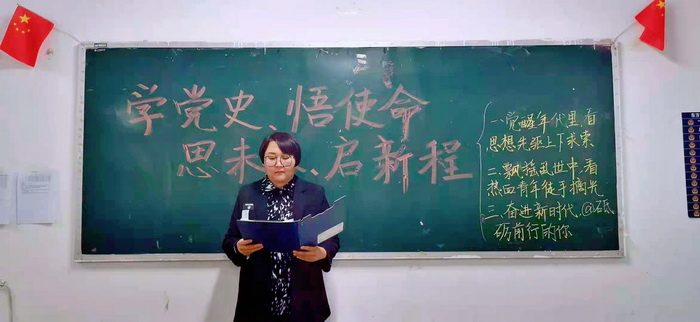 学党史、悟使命
思未、启新程
一、觉醒年代里,看
思想先驱上下求索
二、飘摇乱世中,看
热血青年徒手搞光
三、奋进新时代,@砥
砺前行的你